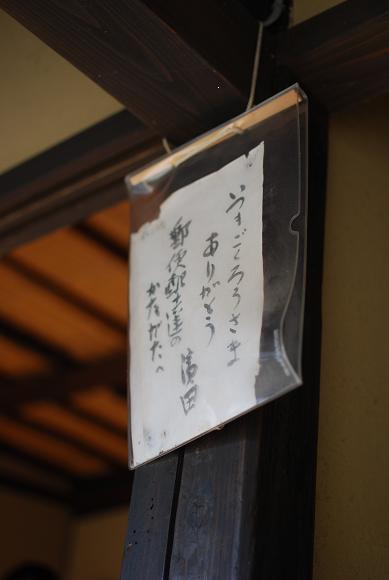 いまごくろうさま
ありがとう
濱田
郵便配達の
かたがたへ